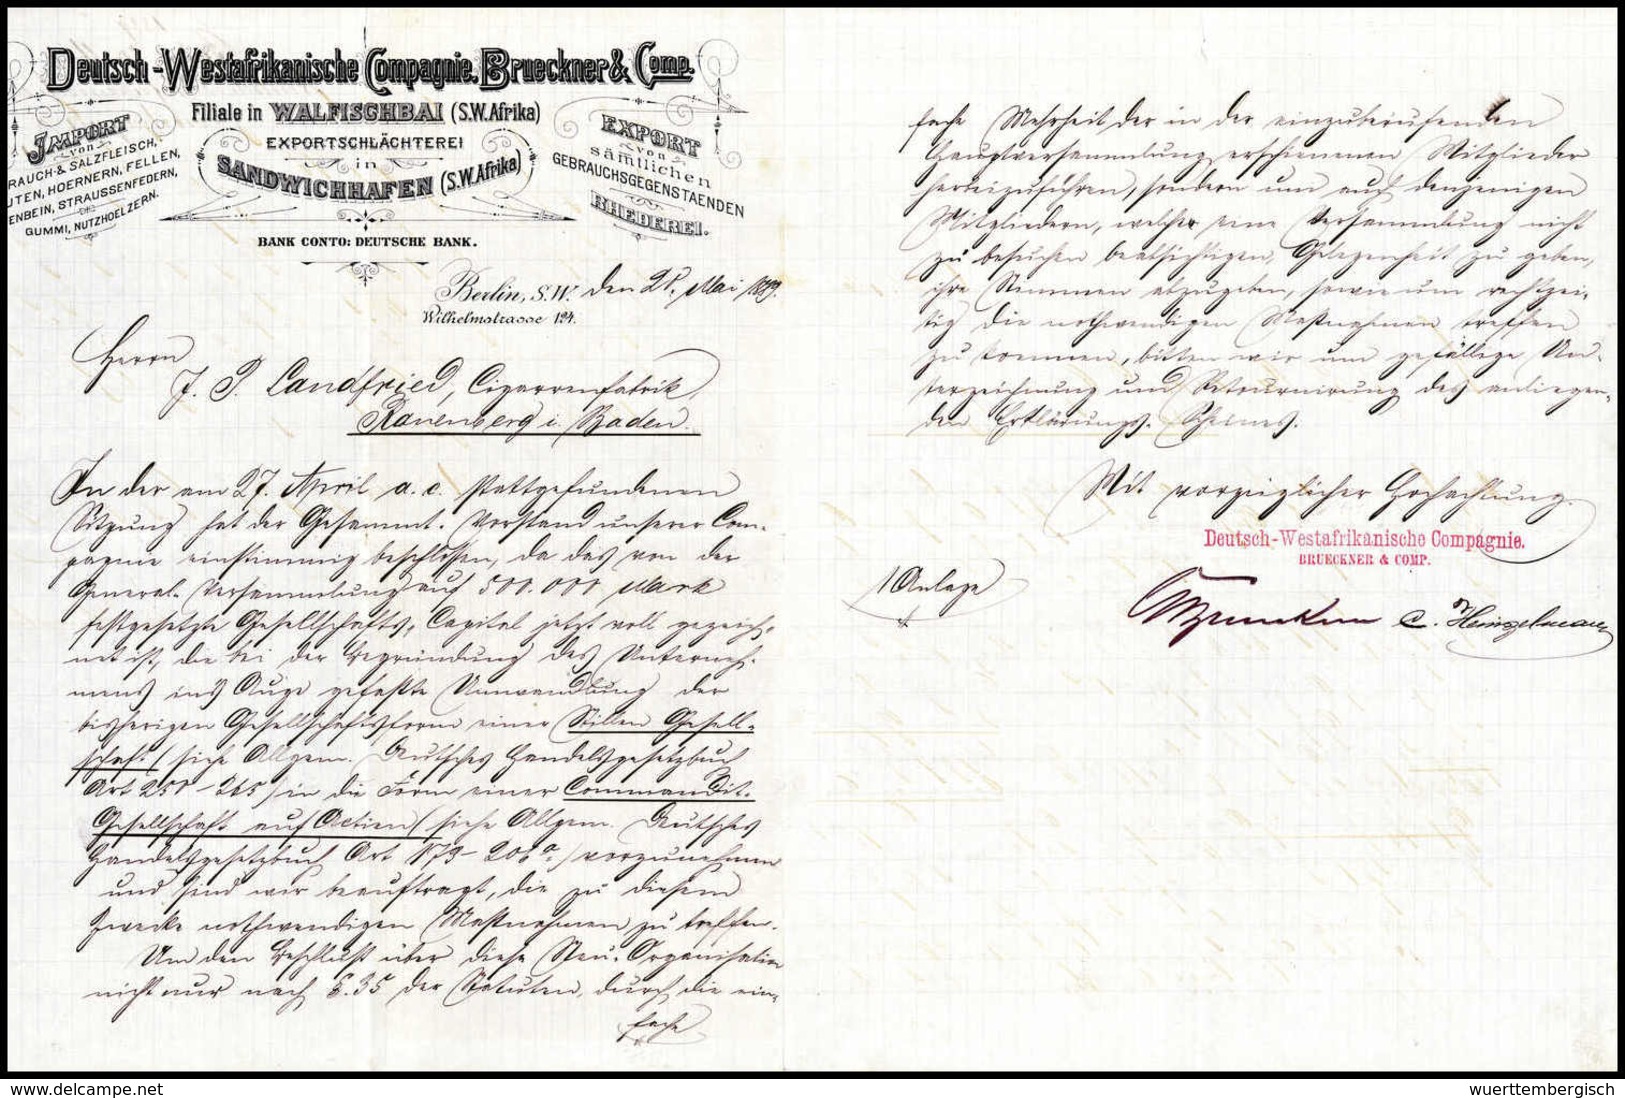 Deutsch-Westafrikanische Compagnie. Brueckner & Comp.
Filiale in WALFISCHBAI (S.W.Afrika)
EXPORTSCHLÄCHTEREI
in
SANDWICHHAFEN (S.W.Afrika)
IMPORT
von
RAUCH-& SALZFLEISCH,
UTEN, HOERNERN, FELLEN,
ENBEIN, STRAUSSENFEDERN,
GUMMI, NUTZHOELZERN.
EXPORT
von
sämtlichen
GEBRAUCHSGEGENSTAENDEN
RHEDEREI.
BANK CONTO: DEUTSCHE BANK.
Berlin, S.W. den 28. Mai 1889.
Wilhelmstrasse 124.
Herrn
J. P. Landfried, Cigarrenfabrik
Rauenberg i. Baden.
In der am 27. April a. c. stattgefundenen
Sitzung hat der Gesammt-Vorstand unserer Com-
pagnie einstimmig beschlossen, da das von der
General-Versammlung auf 500.000 Mark
festgesetzte Gesellschafts-Capital jetzt voll gezeich-
net ist, die bei der Begründung des Unterneh-
mens ins Auge gefaßte Umwandlung der
bisherigen Gesellschaftsform einer Stillen Gesell-
schaft (siehe Allgem. Deutsches Handelsgesetzbuch
Art 250-265) in die Form einer Commandit-
Gesellschaft auf Actien (siehe Allgem. Deutsches
Handelsgesetzbuch Art 173-206a) vorzunehmen
und sind wir beauftragt, die zu diesem
Zwecke nothwendigen Maßnahmen zu treffen.
Um den Beschluß über diese Neu-Organisation
nicht nur nach §.35 der Statuten, durch die ein-
fache
fache Mehrheit der in der einzuberufenden
Hauptversammlung erschienenen Mitglieder
herbeizuführen, sondern um auch denjenigen
Mitgliedern, welche eine Versammlung nicht
zu besuchen beabsichtigen, Gelegenheit zu geben,
ihre Stimmen abzugeben, sowie um rechtzei-
tig die nothwendigen Maßnahmen treffen
zu können, bitten wir um gefällige Un-
terzeichnung und Retournirung des anliegen-
den Erklärungs-Scheines.
Mit vorzüglicher Hochachtung
Deutsch-Westafrikanische Compagnie.
BRUECKNER & COMP.
1 Anlage
Brueckner C. Heingelmann
delcampe.net
wuerttembergisch